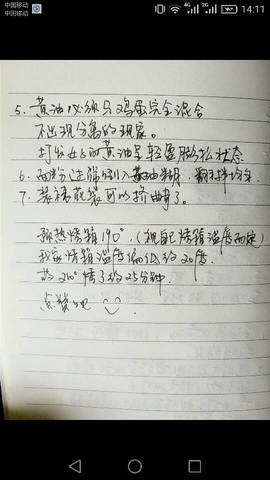 中国移动
中国移动
4G 2G 14:11
5. 黄油必须与鸡蛋完全混合
不出现分离的现象。
打发好的黄油呈轻盈膨松状态
6. 面粉过筛倒入黄油糊，翻拌均匀
7. 装裱花袋可以挤曲奇了。
预热烤箱190°（视自己烤箱温度而定）
我家烤箱温度偏低约20度
故210°烤了约25分钟
点赞吧